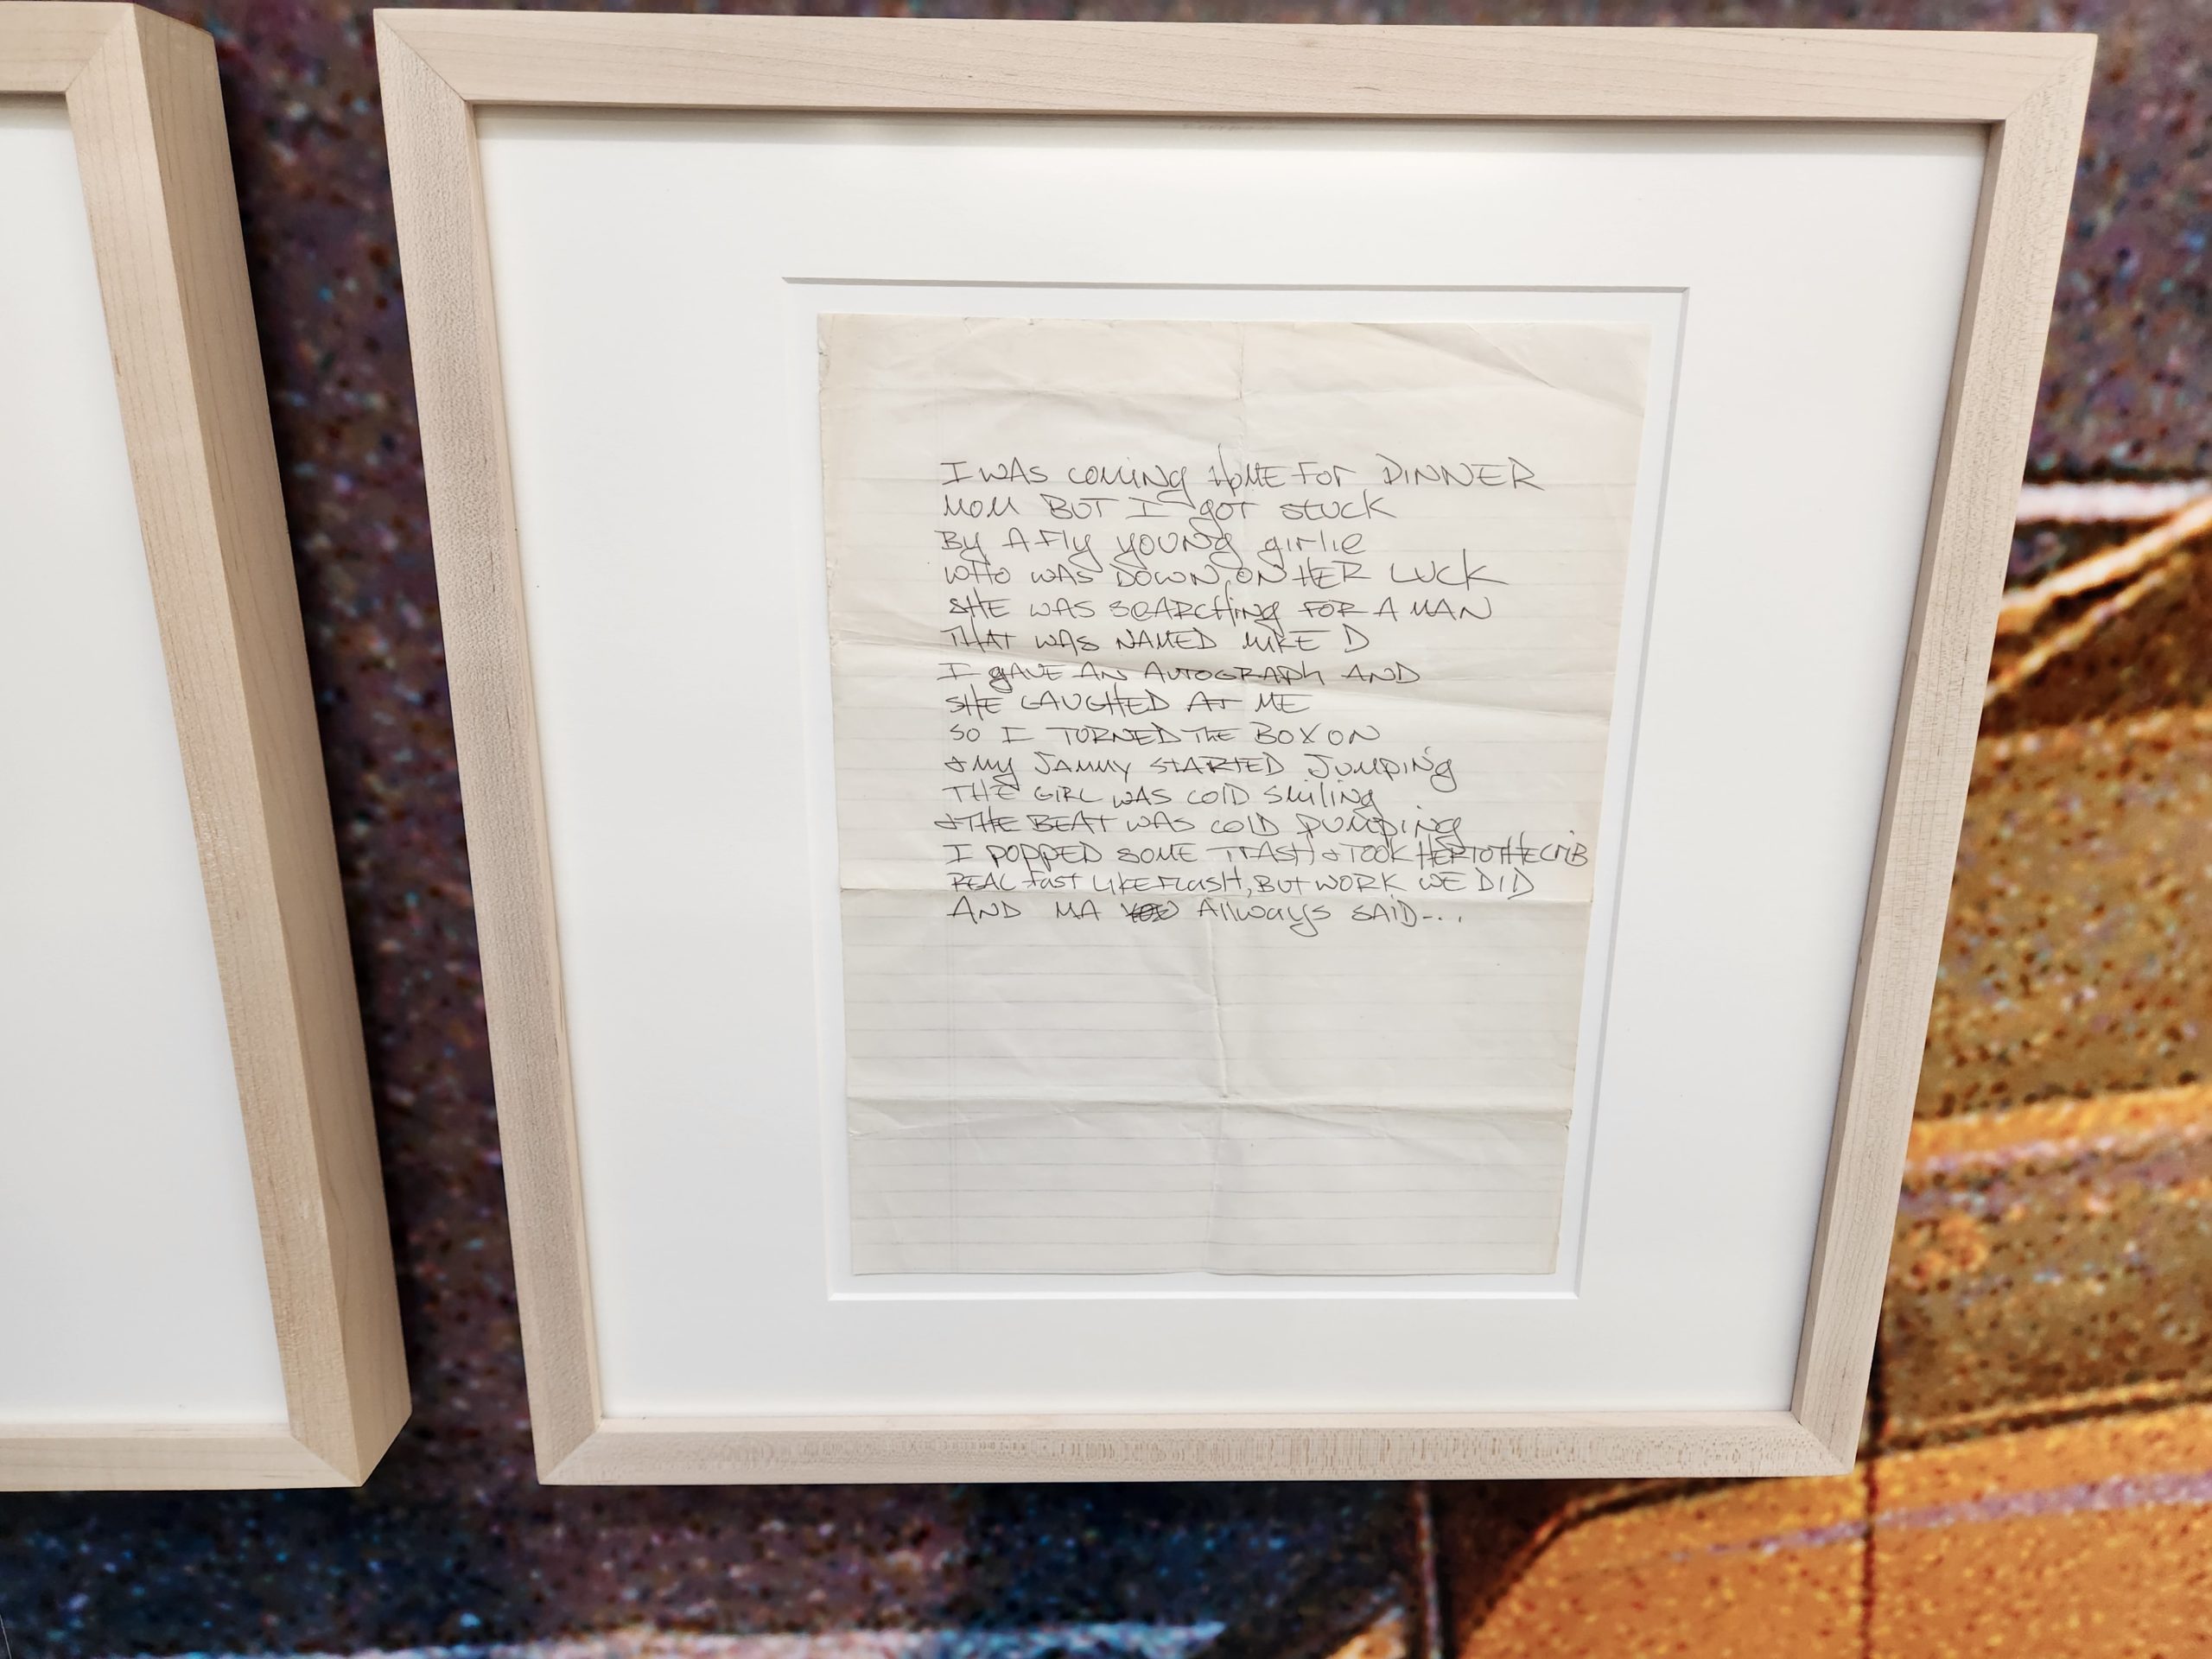 I WAS COMING HOME FOR DINNER
MOM BUT I GOT STUCK
BY A FLY YOUNG girlie
WHO WAS DOWN ON HER LUCK
SHE WAS SEARCHING FOR A MAN
THAT WAS NAMED MIKE D
I gAVE AN AUTOGRAPH AND
SHE LAUGHED AT ME
SO I TURNED THE BOX ON
& MY JAMMY STARTED JUMPING
THE GIRL WAS COLD SMILING
& THE BEAT WAS COLD PUMPING
I POPPED SOME TRASH & TOOK HER TO THE CRIB
REAL FAST LIKE FLASH, BUT WORK WE DID
AND MA Allways SAID...